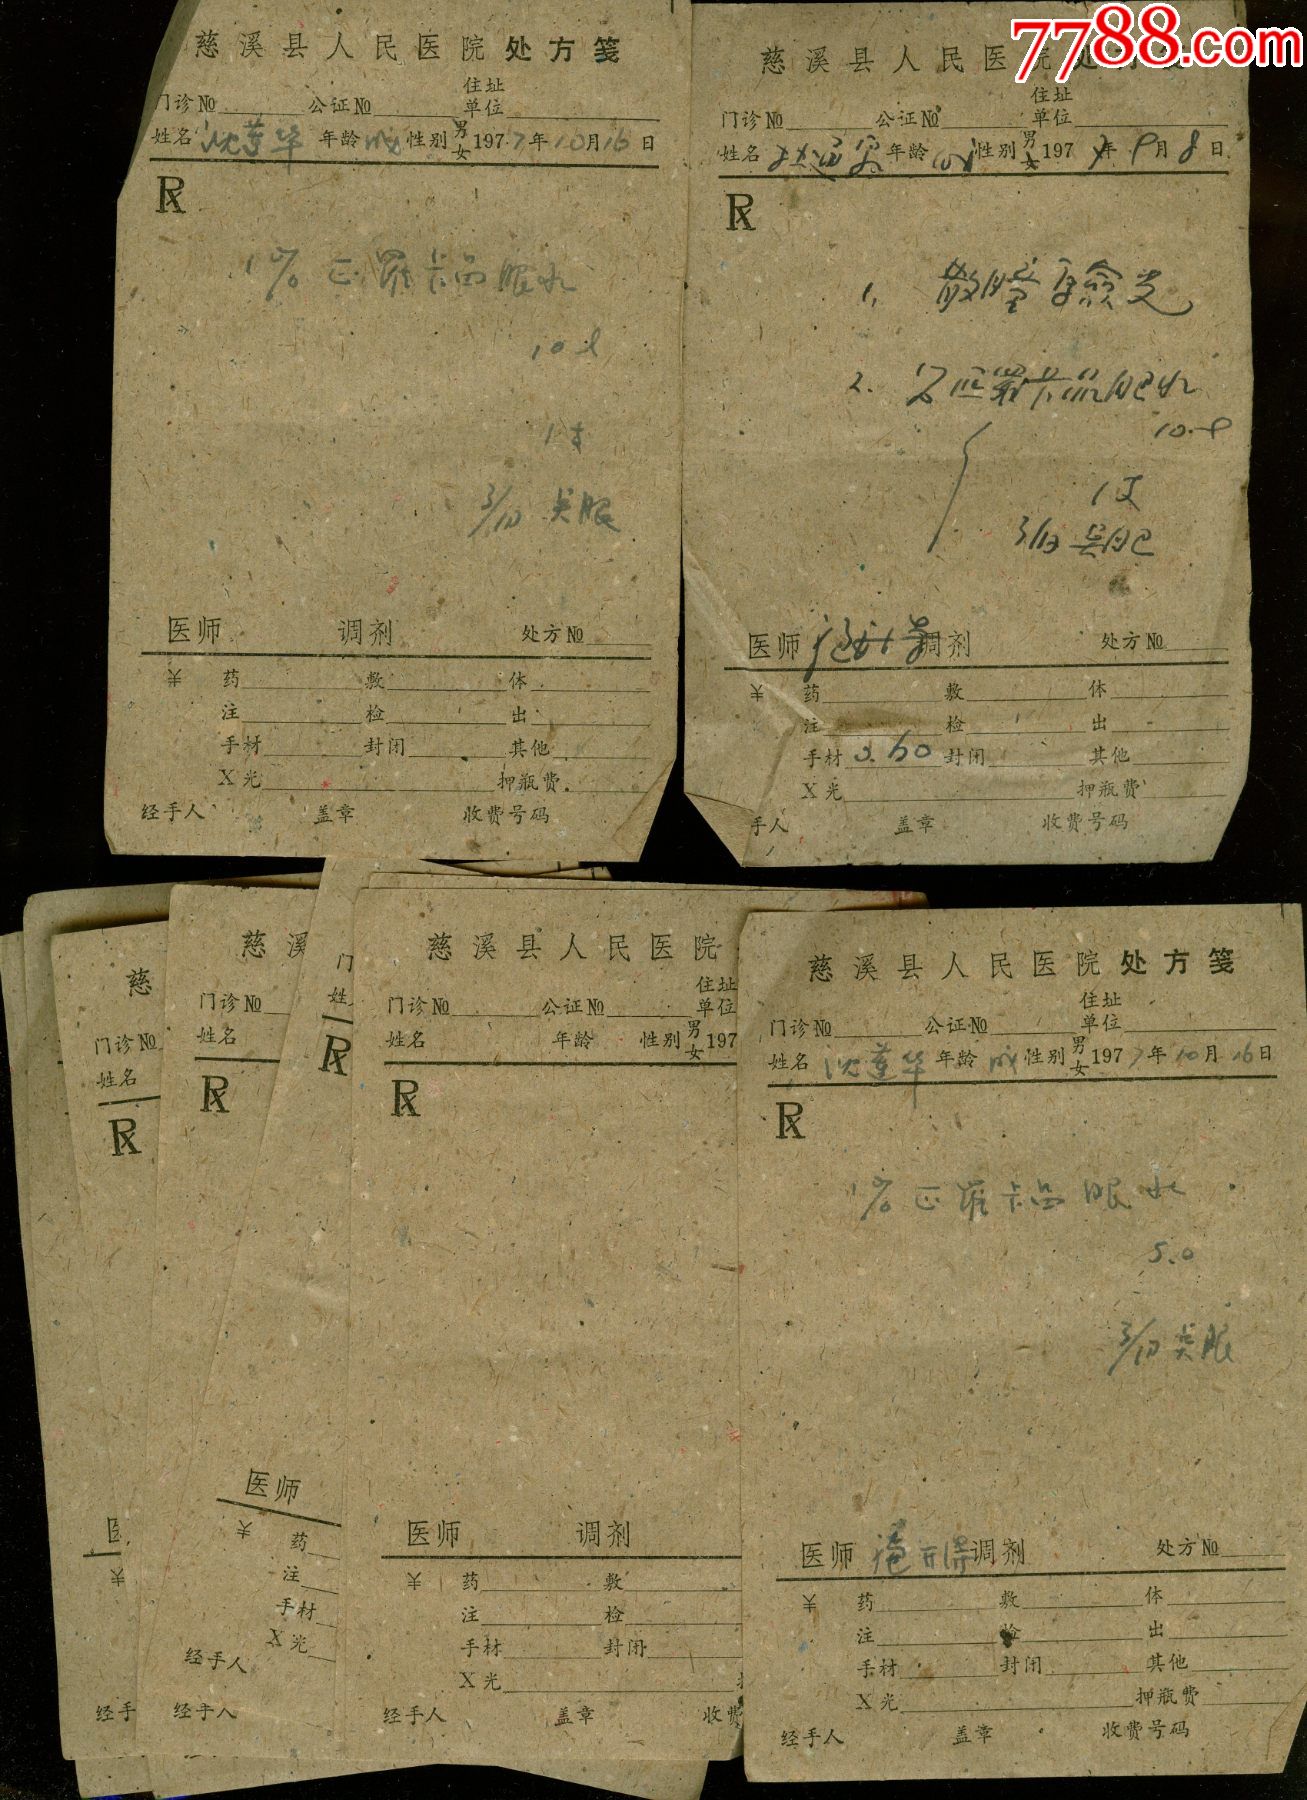 7788.com
慈溪县人民医院处方笺
住址
门诊№ 公证№ 单位
姓名 沈莲华 年龄 成 性别 男女 1977年10月16日
℞
1% 匹罗卡品眼水
10.
1支
3/日 点眼
医师 调剂 处方№
药 敷 体
注 检 出
手材 封闭 其他
X光 押瓶费
经手人 盖章 收费号码
慈溪县人民医院处方笺
住址
门诊№ 公证№ 单位
姓名 年龄 成 性别 男女 1977年9月8日
℞
1. 散瞳验光
2. 匹罗卡品眼水
10.
1支
3/日 点眼
医师 调剂 处方№
药 敷 体
注 检 出
手材 0.60 封闭 其他
X光 押瓶费
手人 盖章 收费号码
慈
门诊№
姓名
℞
医
经手
慈溪
门诊№
姓名
℞
经手人
门
姓
℞
医师
药
注
手材
X光
经手人
慈溪县人民医院
住址
门诊№ 公证№ 单位
姓名 年龄 性别 男女 197
℞
医师 调剂
药 敷
注 检
手材 封闭
X光
经手人 盖章 收费
慈溪县人民医院处方笺
住址
门诊№ 公证№ 单位
姓名 沈莲华 年龄 成 性别 男女 1977年10月16日
℞
1% 匹罗卡品眼水
5.0
3/日 点眼
医师 调剂 处方№
药 敷 体
注 检 出
手材 封闭 其他
X光 押瓶费
经手人 盖章 收费号码